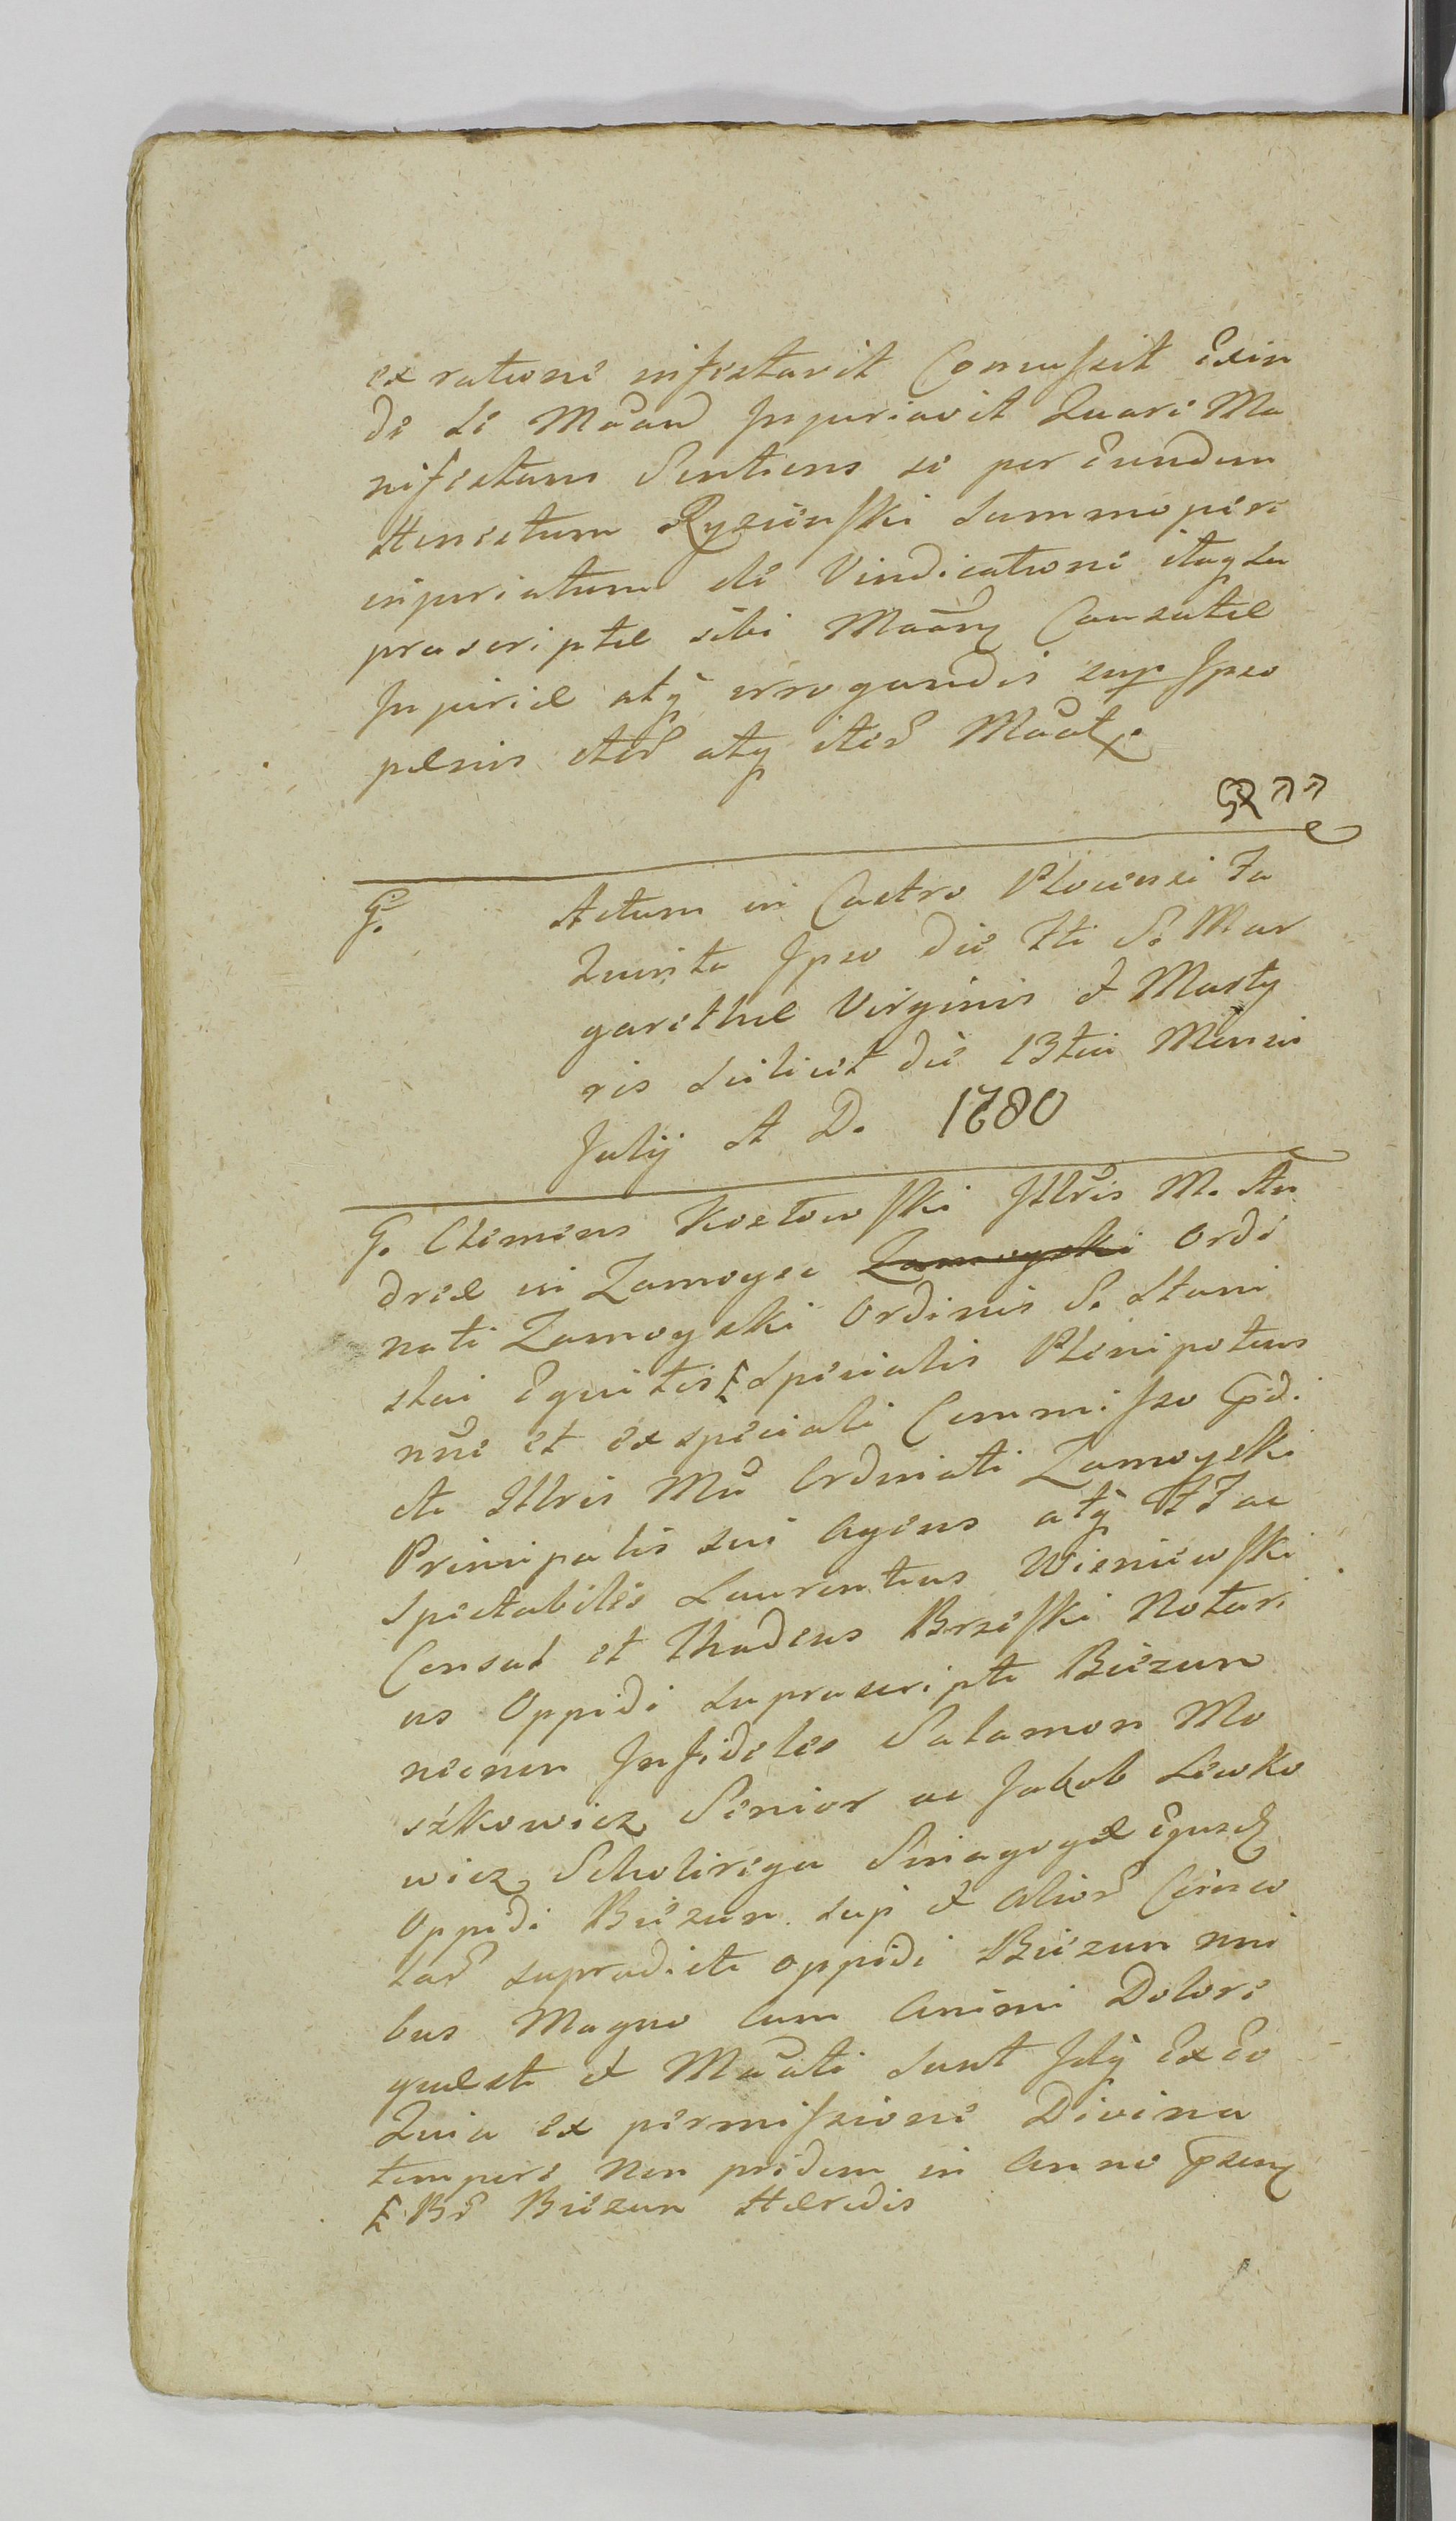 ex ratione infestavit Concussit Exin
de se Mãand Injuriavit Quare Ma
nifestans Sentiens se per Eundem
Honestum Ryziński summopere
injuriatum de Vindicatione itaq3 su
prascriptæ sibi Mãan Causatæ
Injuriæ atq3 irrogandis sup Ipso
pænis iter atq3 iter Mãat.
G.
Actum in Castro Plocensi Fa
Quinta Ipso die Fti S. Mar
garethæ Virginis & Marty
ris scilicet die 13tia Mensis
Julij A D. 1780
G. Clemens Kozłowski Illris M. An
dreæ in Zamoyść Zamoyski Ordi
nati Zamoyski Ordinis S. Stani
slai Equitis Specialis Plenipotens
nne et ex speciali Commisso p̃di
cti Illris Mci Ordinati Zamoyski
Principalis sui Agens atq3 FF ac
Spectabiles Laurentius Wisniewski
Consul et Thadeus Brzeski Notari
us Oppidi supra scripti Biezun
necnon Infideles Salamon Mo
szkowicz Senior ac Jakob Lewko
wicz Scholirega Sinagogæ Ejusd
Oppidi Biezun suis & Alior Incò
lar supradicti oppidi Biezun nni
bus Magno cum Animi Dolore
quæsti & Mãati sunt Idq3 Ex Eo
Quia ex permissione Divina
tempore non pridem in Anno p̃sen
Br Biezun Hæredis